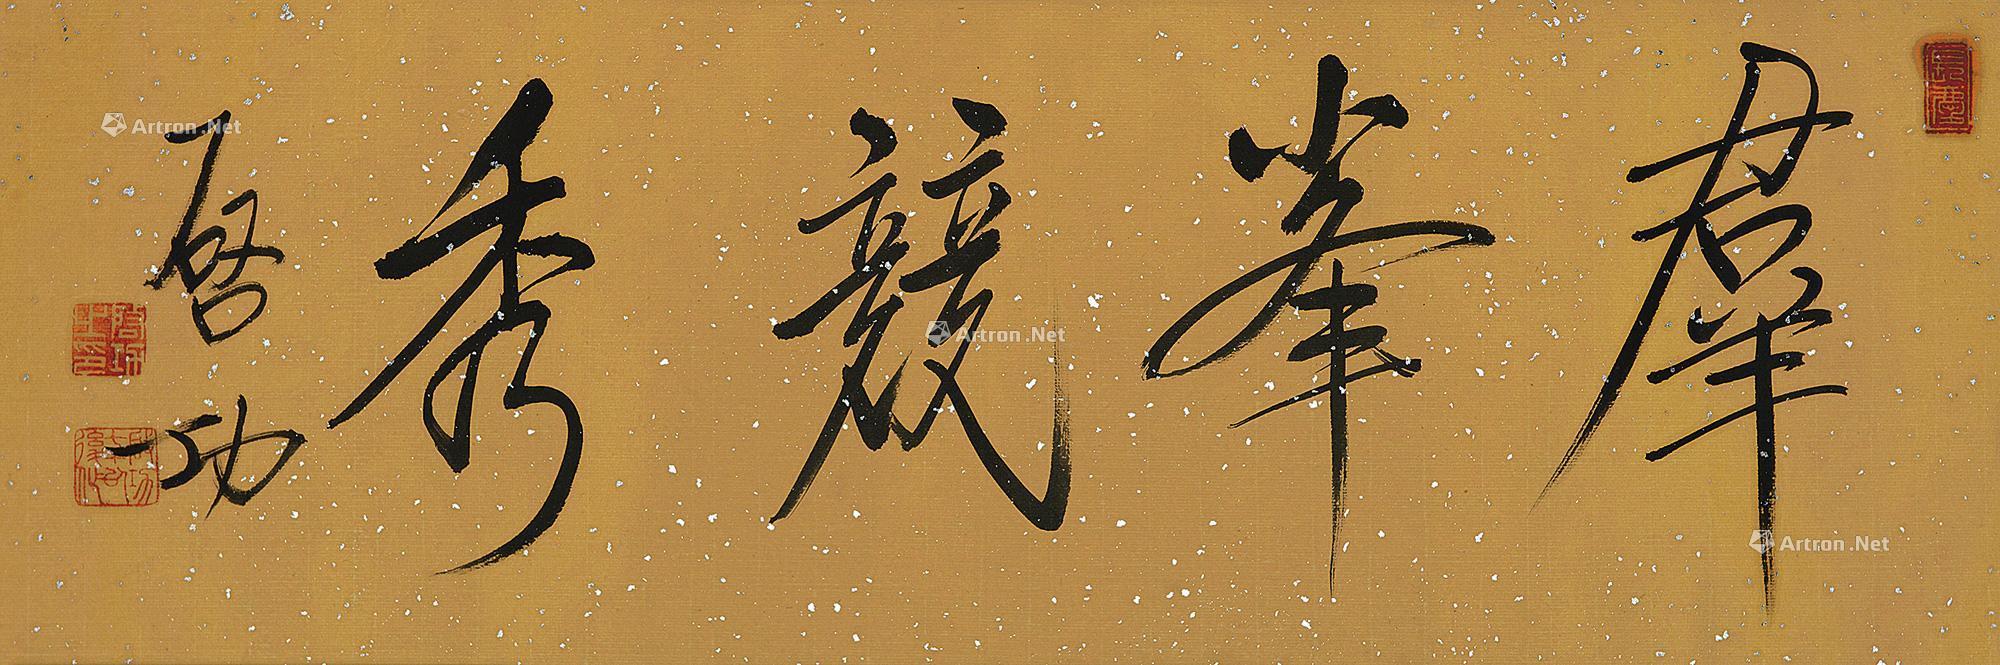 羣峯競秀
啓功
啓功之印
Artron.Net
Artron.Net
Artron.Net